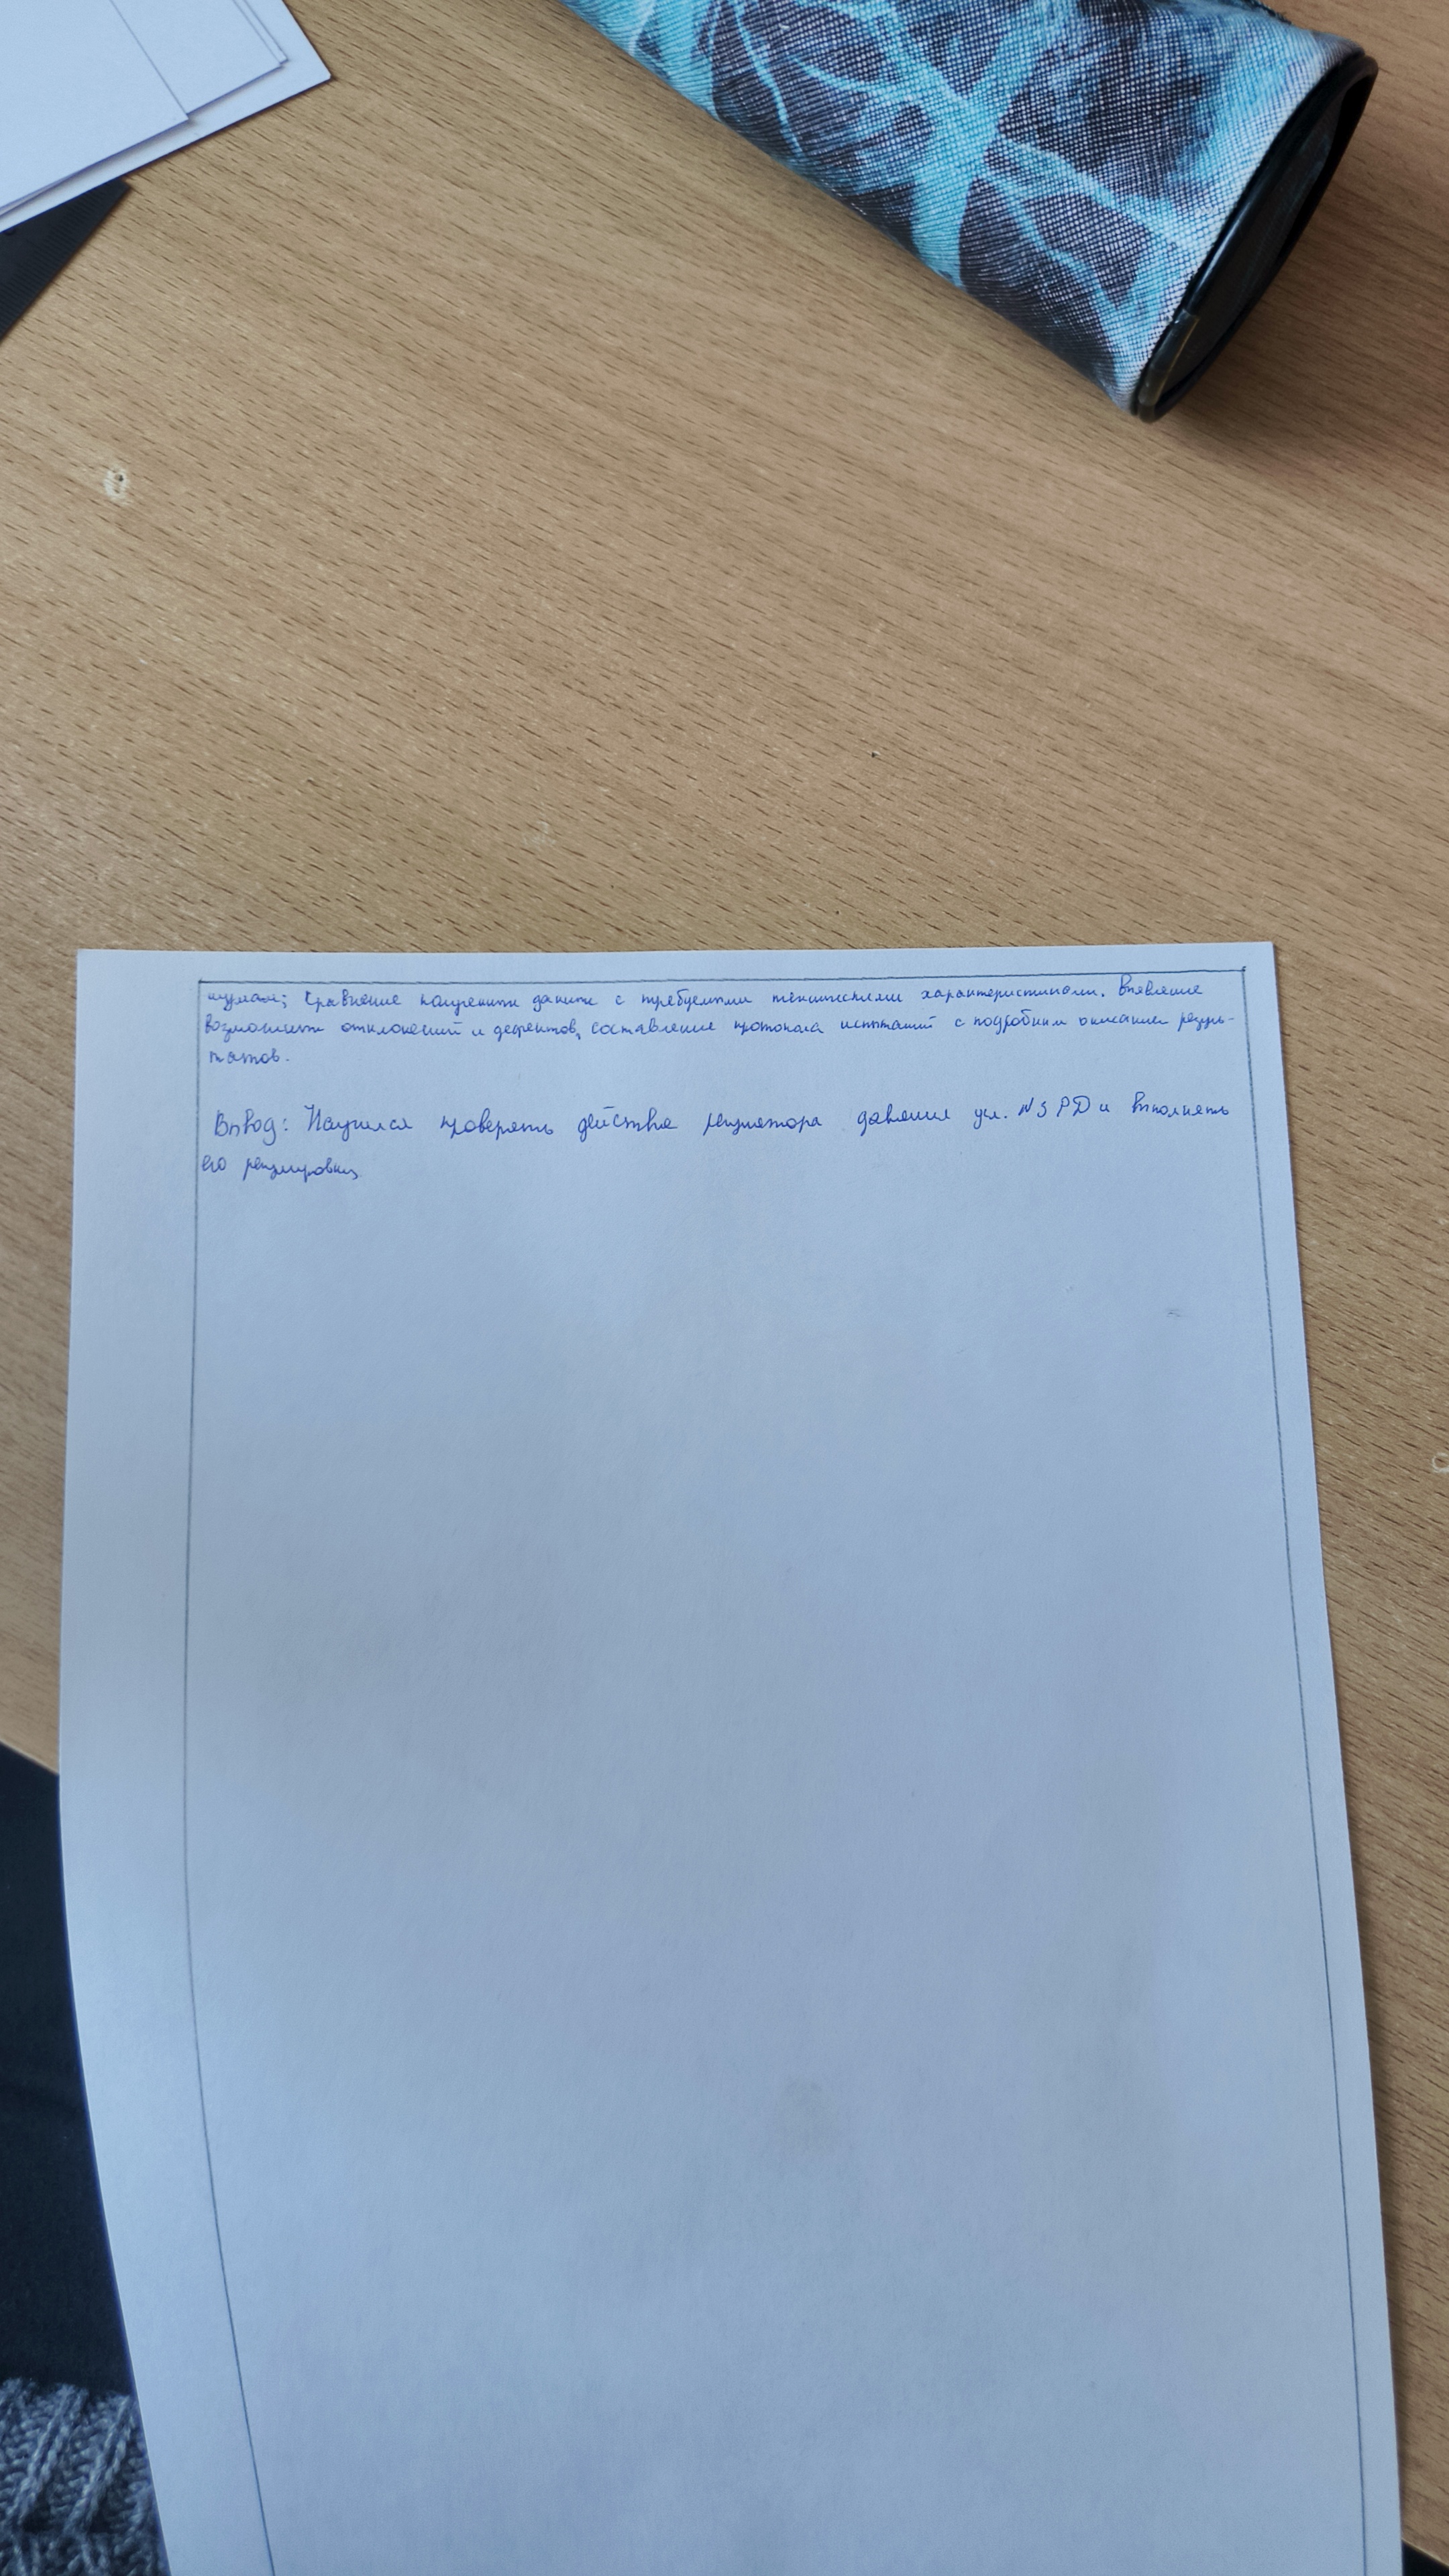 Сравнение полученных данных с требуемыми техническими характеристиками. Выявление
возможных отклонений и дефектов, составление протокола испытаний с подробным описанием резуль-
татов.
Вывод: Научился проверять действие регулятора давления усл. №3РД и выполнять
его регулировку